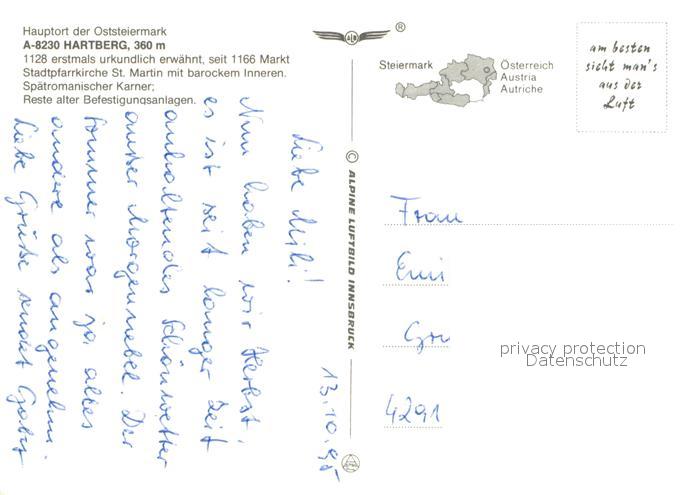 Hauptort der Oststeiermark
A-8230 HARTBERG, 360 m
1128 erstmals urkundlich erwähnt, seit 1166 Markt
Stadtpfarrkirche St. Martin mit barockem Inneren.
Spätromanischer Karner;
Reste alter Befestigungsanlagen.
®
Steiermark
Österreich
Austria
Autriche
am besten
sieht man's
aus der
Luft
© ALPINE LUFTBILD INNSBRUCK
13.10.95
Liebe !
Nun haben wir Herbst,
es ist seit langer Zeit
anhaltendes Schönwetter
außer Morgennebel. Der
Sommer war ja alles
andere als angenehm.
Liebe Grüße sendet
Frau
Emi
Gru
4291
privacy protection
Datenschutz